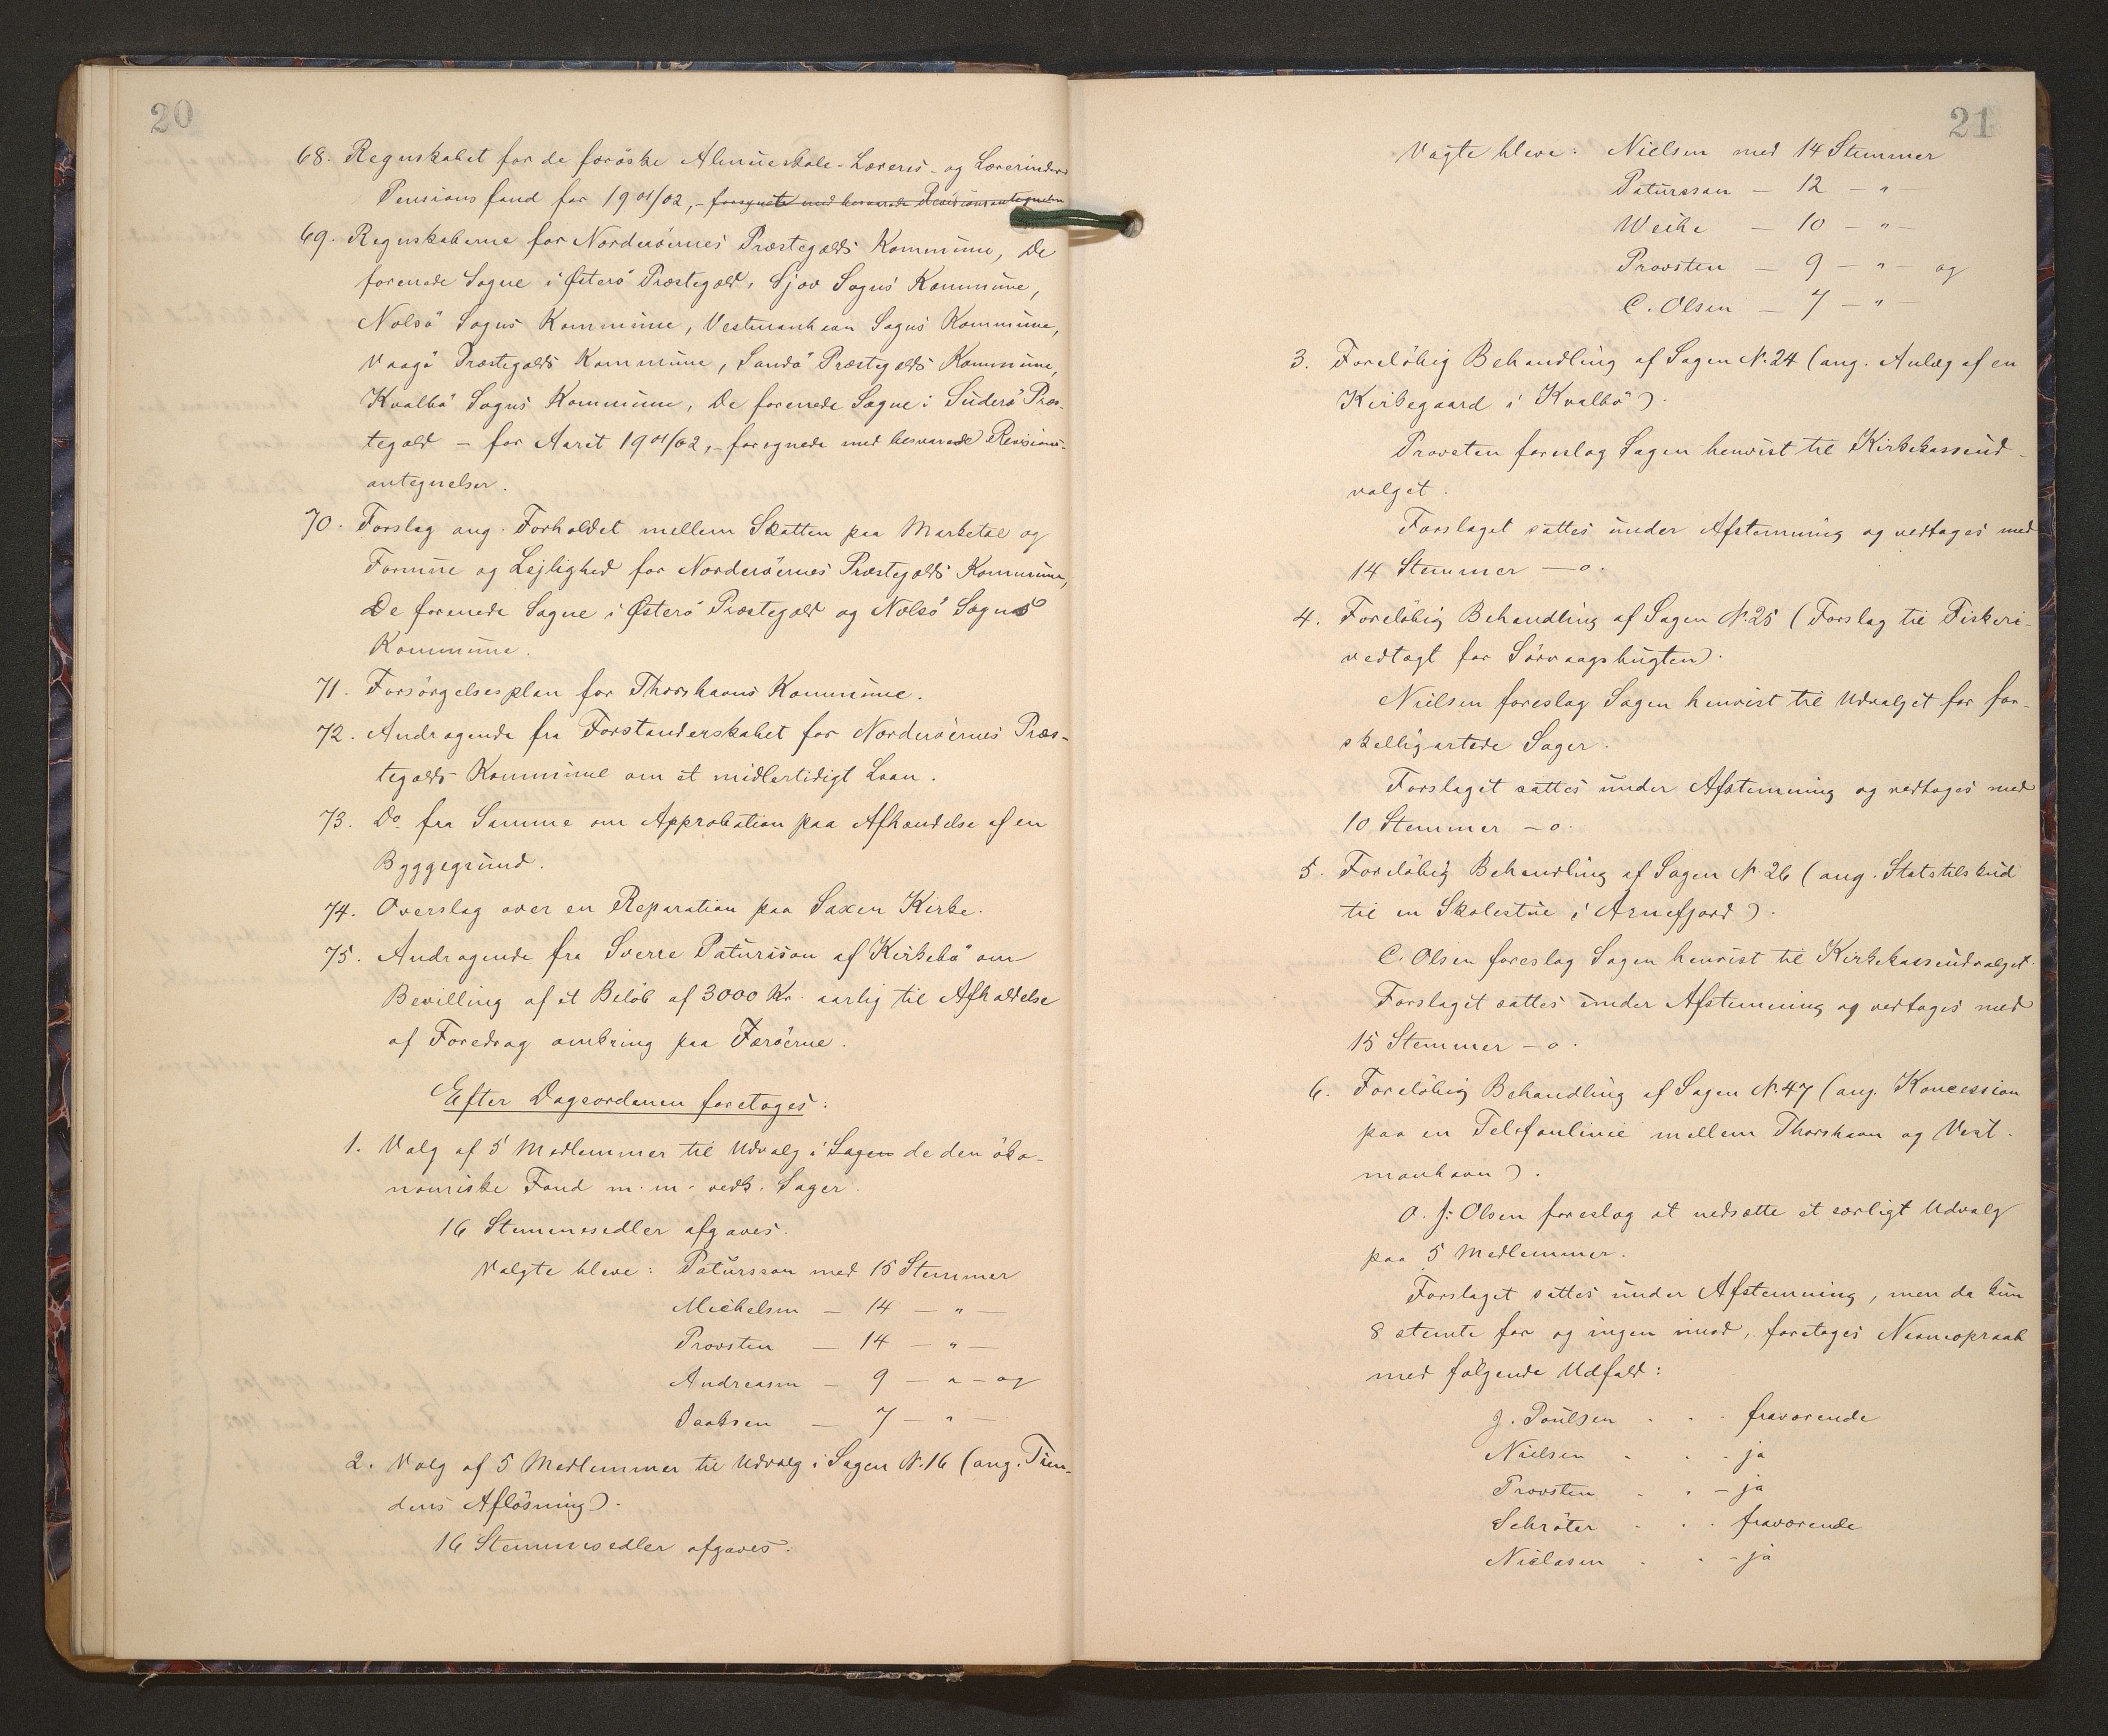 20
68. Regnskabet for de færöske Almueskole-Læreres- og Lærerinders
Pensionsfond for 1901/02,- forsynete med besvarede Revisionsantegnelser
69. Regnskaberne for Norderöernes Præstegælds Kommune, De
forenede Sogne i Østerö Præstegæld, Sjov Sogns Kommune,
Nolsö Sogns Kommune, Vestmanhavn Sogns Kommune,
Vaagö Præstegælds Kommune, Sandö Præstegælds Kommune,
Kvalbö Sogns Kommune, De forenede Sogne i Suderö Præs-
tegæld - for Aaret 1901/02,- forsynede med besvarede Revisions-
antegnelser.
70. Forslag ang. Forholdet mellem Skatten paa Marketal og
Formue og Lejlighed for Norderöernes Præstegælds Kommune,
De forenede Sogne i Østerö Præstegæld og Nolsö Sogns
Kommune.
71. Forsörgelsesplan for Thorshavns Kommune.
72. Andragende fra Forstanderskabet for Norderöernes Præs-
tegælds Kommune om et midlertidigt Laan.
73. Do. fra Samme om Approbation paa Afhændelse af en
Byggegrund.
74. Overslag over en Reparation paa Saxen Kirke.
75. Andragende fra Sverre Patursson af Kirkebö om
Bevilling af et Belöb af 3000 Kr. aarlig til Afholdelse
af Foredrag omkring paa Færöerne.
Efter Dagsordenen foretoges:
1. Valg af 5 Medlemmer til Udvalg i Sagen de den öko-
nomiske Fond m.m. vedk. Sager.
16 Stemmesedler afgaves.
Valgte bleve: Patursson med 15 Stemmer
Michelsen - 14 - " -
Provsten - 14 - " -
Andreasen - 9 - " - og
Isaksen - 7 - " -
2. Valg af 5 Medlemmer til Udvalg i Sagen N. 16 (ang. Tien-
dens Aflösning).
16 Stemmesedler afgaves.
21
Valgte bleve: Nielsen med 14 Stemmer
Patursson - 12 - "
Weihe - 10 - " -
Provsten - 9 - " - og
C. Olsen - 7 - " -
3. Forelöbig Behandling af Sagen N. 24 (ang. Anlæg af en
Kirkegaard i Kvalbö).
Provsten foreslog Sagen henvist til Kirkekasseud-
valget.
Forslaget sattes under Afstemning og vedtoges med
14 Stemmer - o.
4. Forelöbig Behandling af Sagen N. 25 (Forslag til Fiskeri-
vedtægt for Sörvaagsbugten).
Nielsen foreslog Sagen henvist til Udvalget for for-
skelligartede Sager.
Forslaget sattes under Afstemning og vedtoges med
10 Stemmer - o.
5. Forelöbig Behandling af Sagen N. 26 (ang. Statstilskud
til en Skolestue i Arnefjord).
C. Olsen foreslog Sagen henvist til Kirkekasseudvalget.
Forslaget sattes under Afstemning og vedtoges med
15 Stemmer - o.
6. Forelöbig Behandling af Sagen N. 47 (ang. Koncession
paa en Telefonlinie mellem Thorshavn og Vest-
manhavn).
O. J. Olsen foreslog at nedsætte et særligt Udvalg
paa 5 Medlemmer.
Forslaget sattes under Afstemning, men da kun
8 stemte for og ingen imod, foretoges Navneopraab
med fölgende Udfald:
J. Poulsen . . . fraværende
Nielsen . . . ja
Provsten . . - ja
Schröter . . . fraværende
Niclasen . . - ja